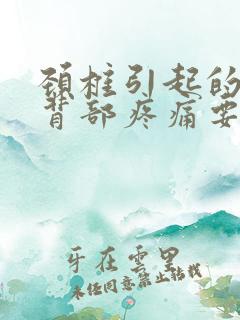 颈椎引起的
背部疼痛要
牙在云里
未经同意禁止转载